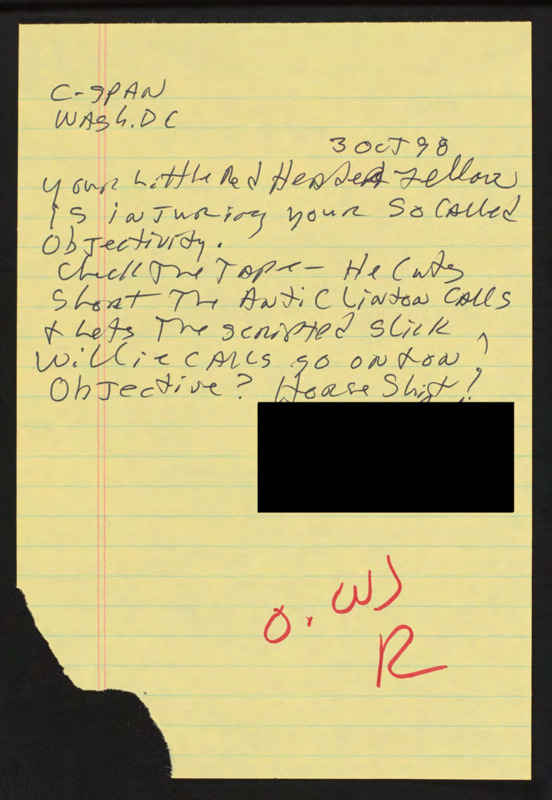 C-SPAN
WASh. DC
3 OCT 98
your Little Red Headed Fellow
is injuring your so called
Objectivity.
Check The Tape - He Cuts
Short The Anti Clinton Calls
& Lets The scripted Slick
Willie CALLS go on & on,
Objective? Horse Shit!
O. WJ
R